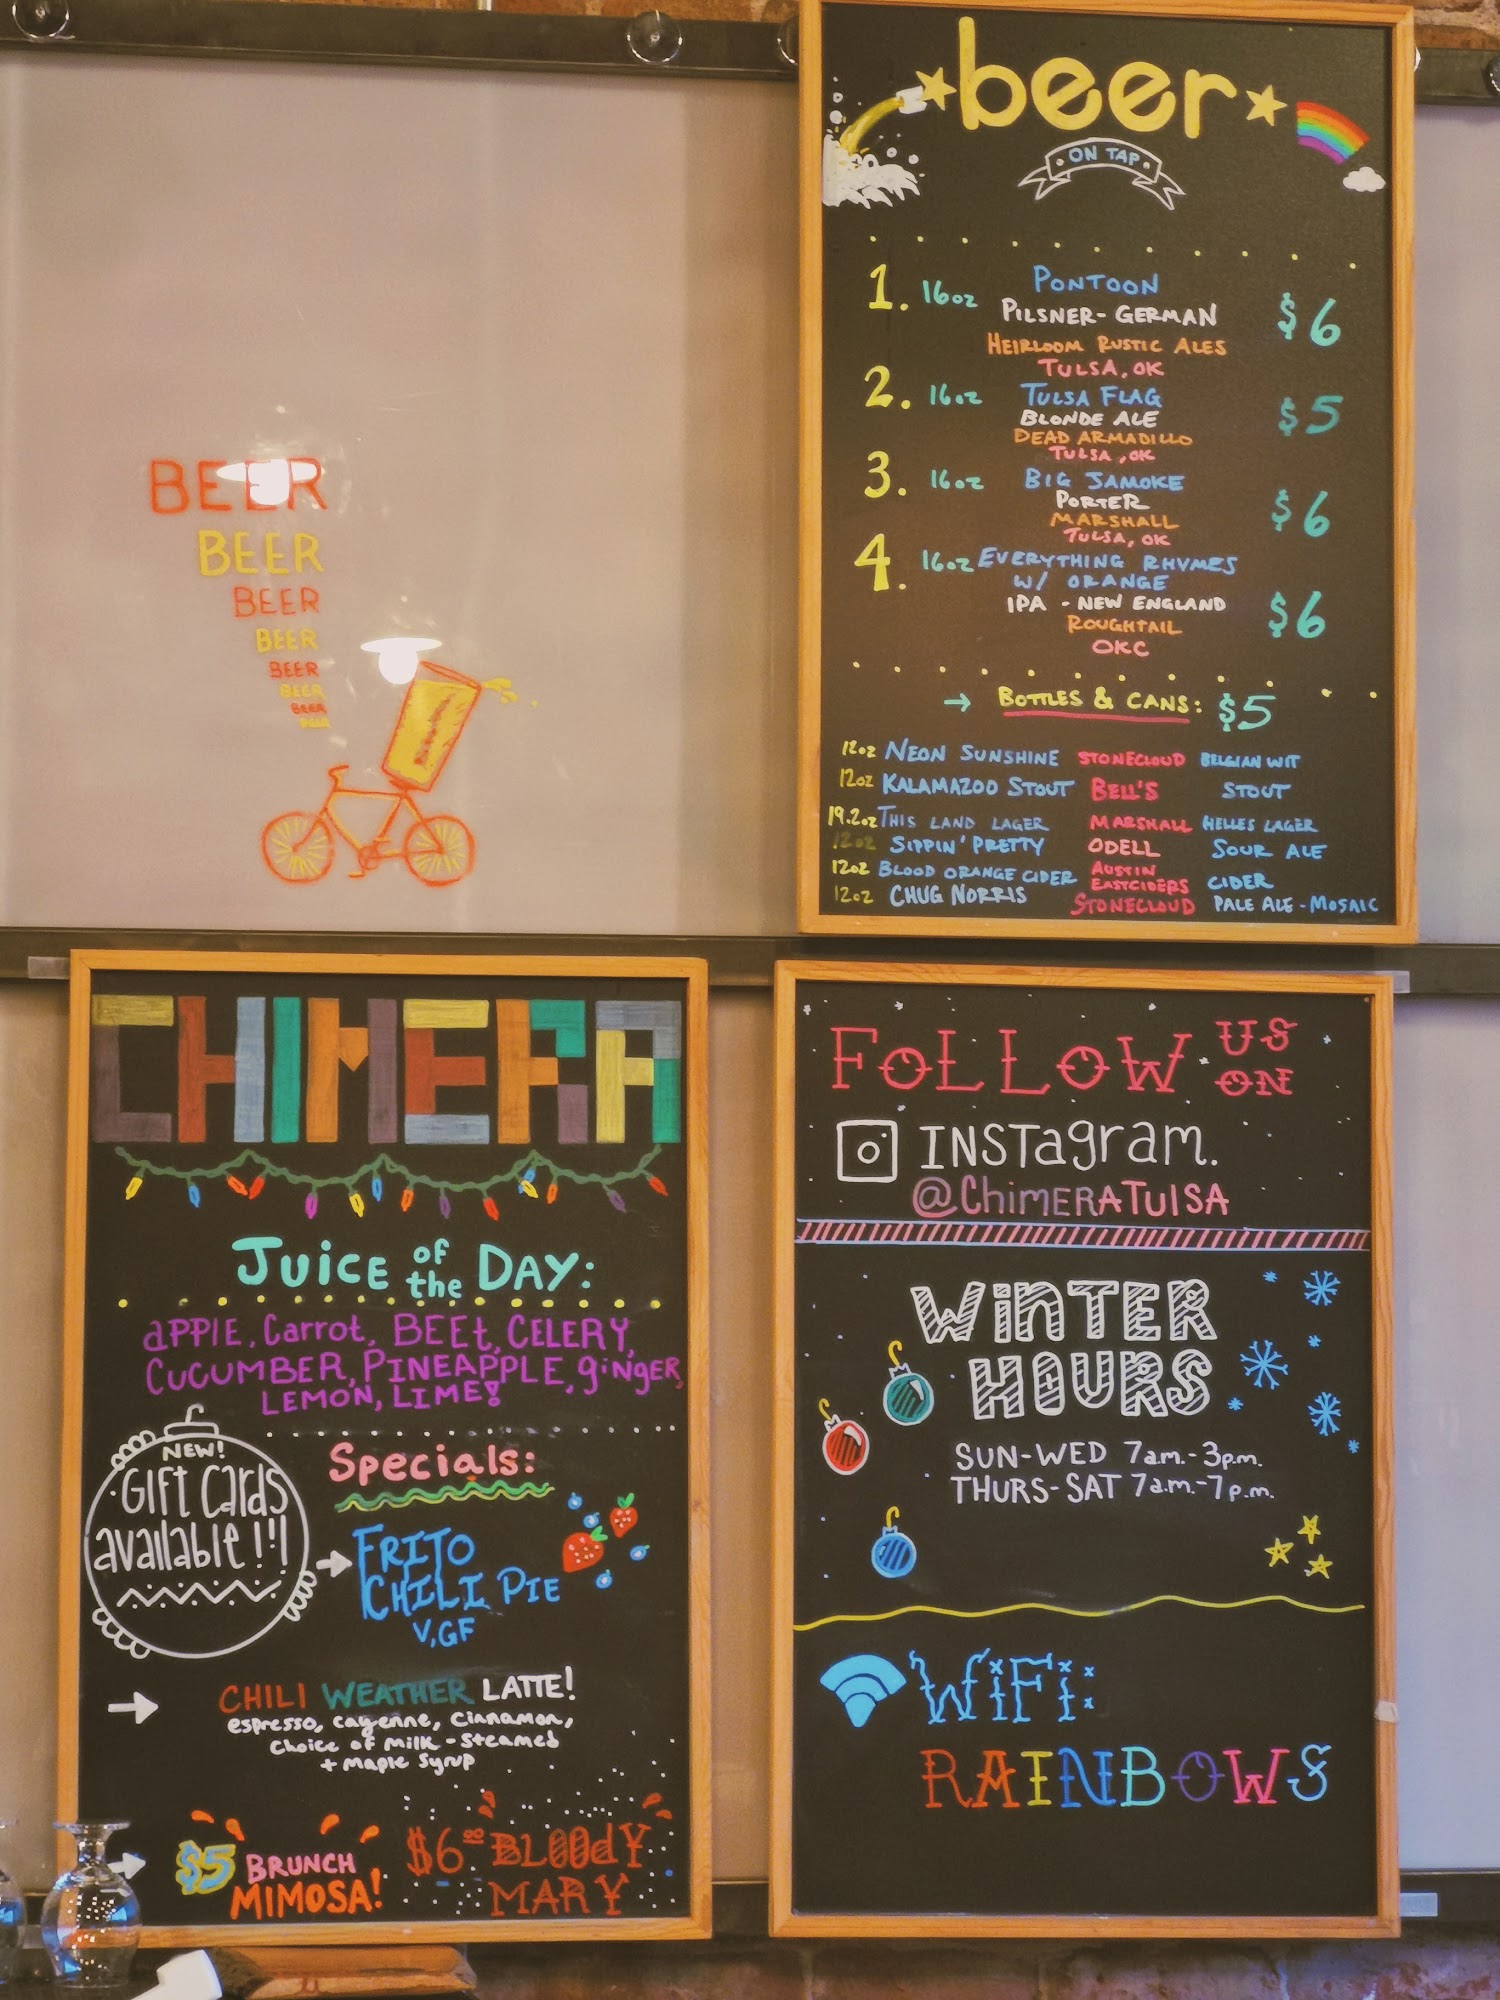 BEER
BEER
BEER
BEER
BEER
BEER
BEER
BEER
beer
ON TAP
1. 16oz PONTOON $6
PILSNER - GERMAN
HEIRLOOM RUSTIC ALES
TULSA, OK
2. 16oz TULSA FLAG $5
BLONDE ALE
DEAD ARMADILLO
TULSA, OK
3. 16oz BIG JAMOKE $6
PORTER
MARSHALL
TULSA, OK
4. 16oz EVERYTHING RHYMES
W/ ORANGE
IPA - NEW ENGLAND $6
ROUGHTAIL
OKC
→ BOTTLES & CANS: $5
12oz NEON SUNSHINE STONECLOUD BELGIAN WIT
12oz KALAMAZOO STOUT BELL'S STOUT
19.2oz THIS LAND LAGER MARSHALL HELLES LAGER
12oz SIPPIN' PRETTY ODELL SOUR ALE
12oz BLOOD ORANGE CIDER AUSTIN EASTCIDERS CIDER
12oz CHUG NORRIS STONECLOUD PALE ALE - MOSAIC
CHIMERA
JUICE of the DAY:
aPPlE, Carrot, BEEt, CELERY,
CUCUMBER, PINEAPPLE, ginger,
LEMON, LIME!
NEW!
GIFT Cards
available!!!
Specials:
→ FRITO
CHILI PIE
V, GF
→ CHILI WEATHER LATTE!
espresso, cayenne, cinnamon,
choice of milk - steamed
+ maple syrup
→ $5 BRUNCH
MIMOSA!
$6.00 BLOOdY
MARY
FOLLOW US ON
INSTagram.
@ChimERATulSA
WiNTER
HOURS
SUN-WED 7a.m.-3p.m.
THURS-SAT 7a.m.-7p.m.
WiFi:
RAINBOWS